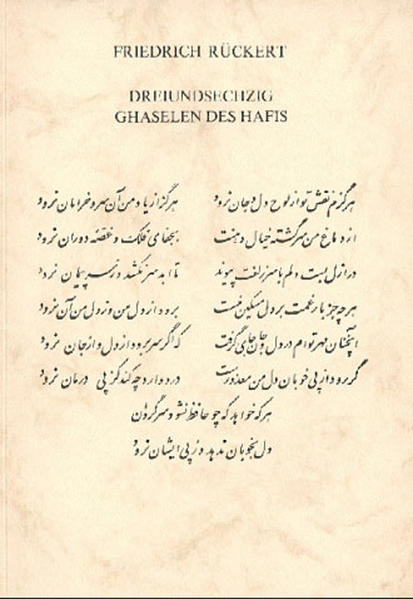 FRIEDRICH RÜCKERT
DREIUNDSECHZIG
GHASELEN DES HAFIS
هرگزم نقش تو از لوح دل و جان نرود هرگز از یاد من آن سرو خرامان نرود
از دماغ من سرگشته خیال دهنت بجفای فلک و غصه دوران نرود
در ازل بست دلم با سر زلفت پیوند تا ابد سر نکشد وز سر پیمان نرود
هر چه جز بار غمت بر دل مسکین منست برود از دل من وز دل من آن نرود
آنچنان مهر توام در دل و جان جای گرفت که اگر سر برود از دل و از جان نرود
گر رود از پی خوبان دل من معذورست درد دارد چه کند کز پی درمان نرود
هر که خواهد که چو حافظ نشود سرگردان
دل بخوبان ندهد وز پی ایشان نرود